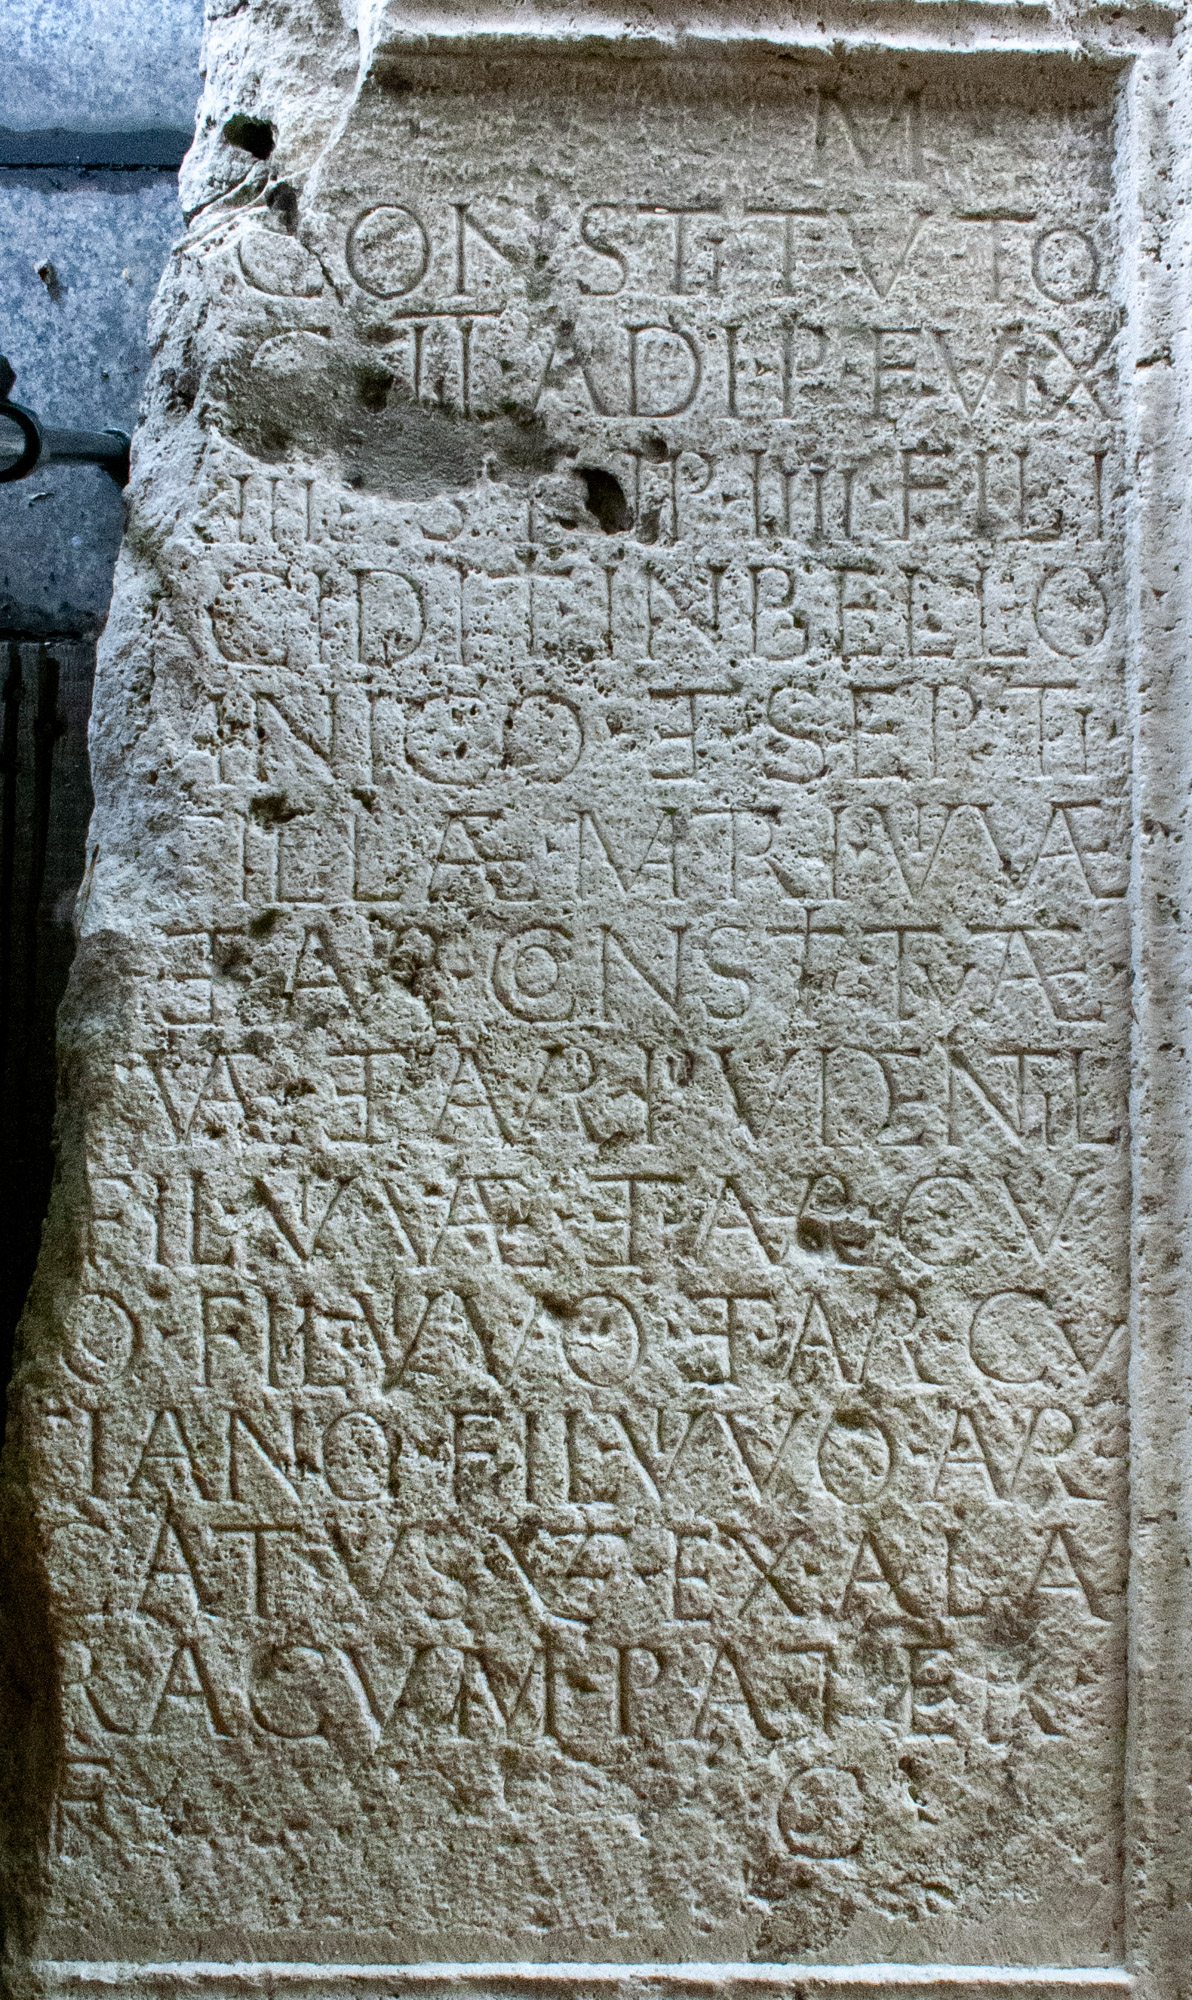 M
CONSTITVTO
C II ADIP F VIX
III ST IP IIII FILI
CIDIT IN BELLO
INICO ET SEPTI
ILLAE MTRI VIVAE
ET AR CONSTITVTAE
VAE ET AR PVDENTIL
FIL VIVAE ET AR CV
O FIL VIVO ET AR CV
IANO FIL VIVO AR
ATVS VET EX ALA
RACVM PATER
F C